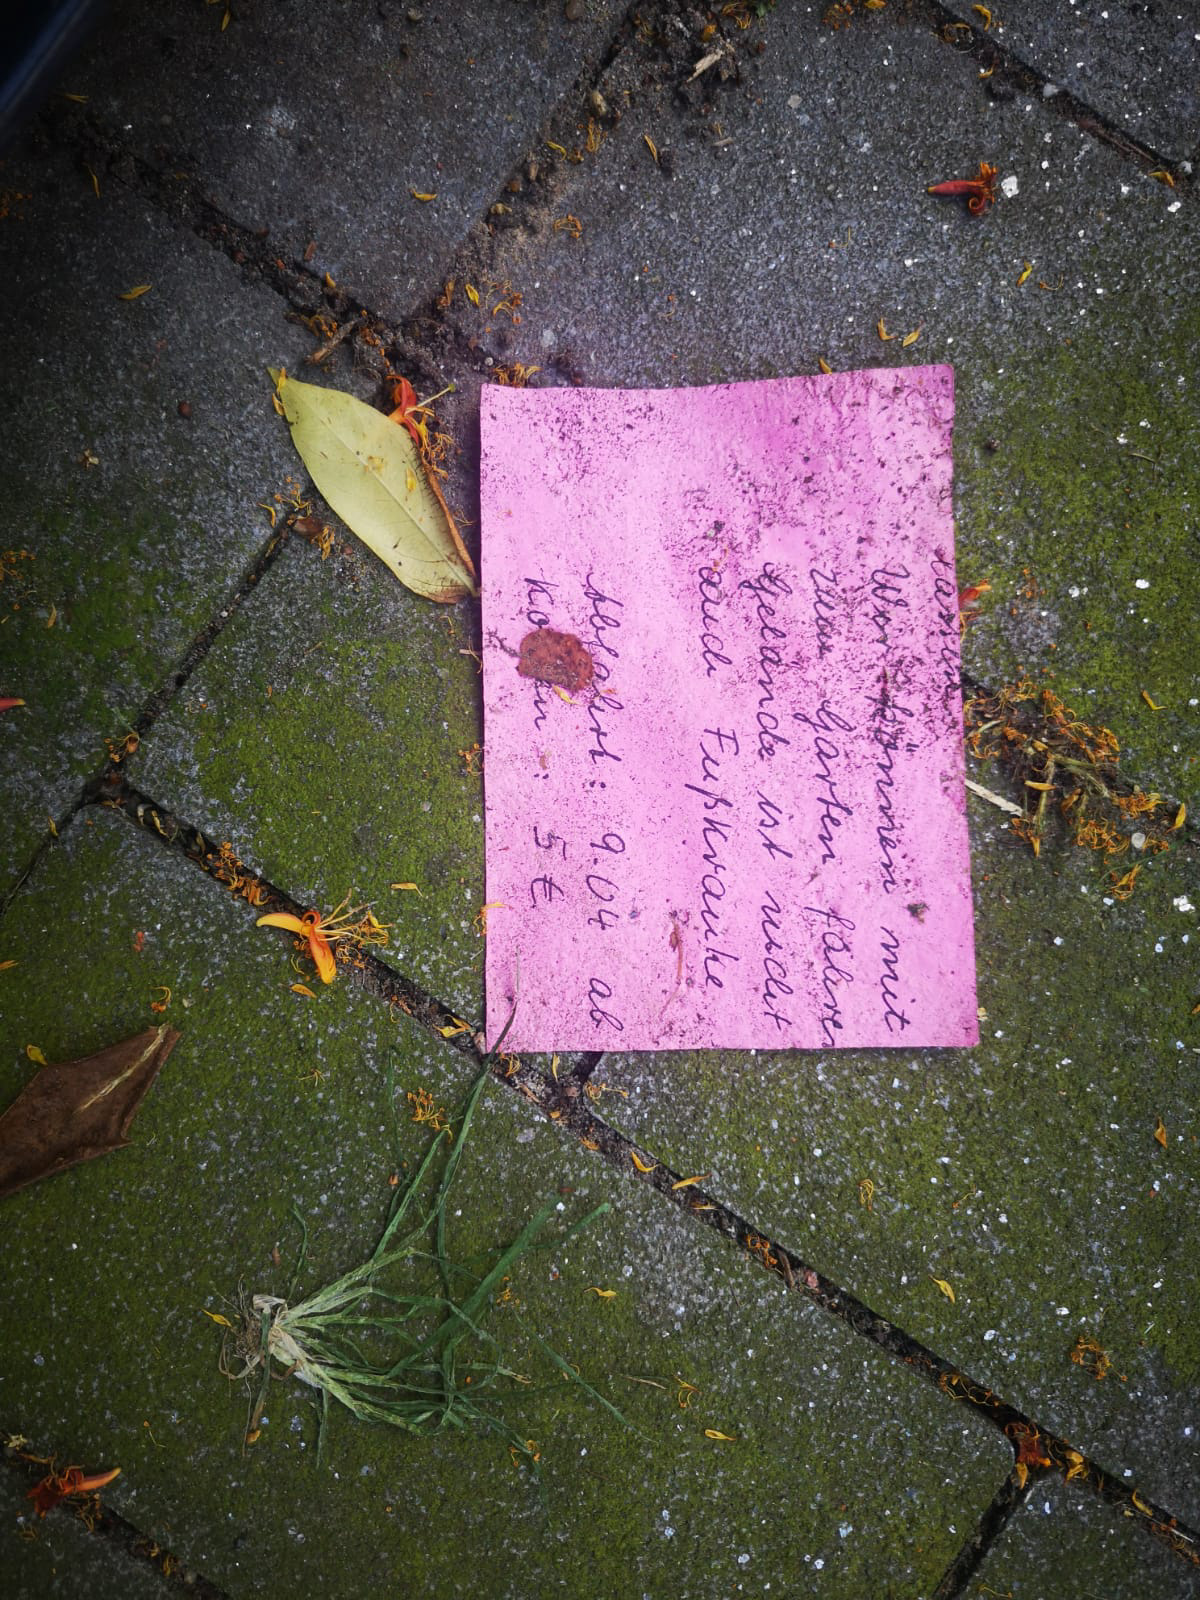 Wir können mit
zum Garten fahren
Gelände ist nicht
auch Fußkranke
Abfahrt: 9.04 ab
Ko en: 5 €